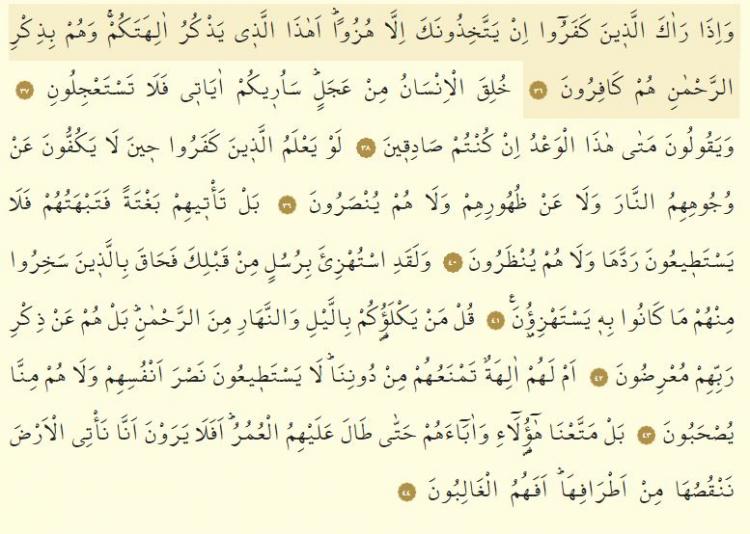 وَاِذَا رَاٰكَ الَّذ۪ينَ كَفَرُٓوا اِنْ يَتَّخِذُونَكَ اِلَّا هُزُوًاۜ اَهٰذَا الَّذ۪ي يَذْكُرُ اٰلِهَتَكُمْۚ وَهُمْ بِذِكْرِ
الرَّحْمٰنِ هُمْ كَافِرُونَ ﴿٣٦﴾ خُلِقَ الْاِنْسَانُ مِنْ عَجَلٍۜ سَاُر۪يكُمْ اٰيَات۪ي فَلَا تَسْتَعْجِلُونِ ﴿٣٧﴾
وَيَقُولُونَ مَتٰى هٰذَا الْوَعْدُ اِنْ كُنْتُمْ صَادِق۪ينَ ﴿٣٨﴾ لَوْ يَعْلَمُ الَّذ۪ينَ كَفَرُوا ح۪ينَ لَا يَكُفُّونَ عَنْ
وُجُوهِهِمُ النَّارَ وَلَا عَنْ ظُهُورِهِمْ وَلَا هُمْ يُنْصَرُونَ ﴿٣٩﴾ بَلْ تَأْت۪يهِمْ بَغْتَةً فَتَبْهَتُهُمْ فَلَا
يَسْتَط۪يعُونَ رَدَّهَا وَلَا هُمْ يُنْظَرُونَ ﴿٤٠﴾ وَلَقَدِ اسْتُهْزِئَ بِرُسُلٍ مِنْ قَبْلِكَ فَحَاقَ بِالَّذ۪ينَ سَخِرُوا
مِنْهُمْ مَا كَانُوا بِه۪ يَسْتَهْزِؤُ۫نَ۟ ﴿٤١﴾ قُلْ مَنْ يَكْلَؤُ۬كُمْ بِالَّيْلِ وَالنَّهَارِ مِنَ الرَّحْمٰنِۜ بَلْ هُمْ عَنْ ذِكْرِ
رَبِّهِمْ مُعْرِضُونَ ﴿٤٢﴾ اَمْ لَهُمْ اٰلِهَةٌ تَمْنَعُهُمْ مِنْ دُونِنَاۜ لَا يَسْتَط۪يعُونَ نَصْرَ اَنْفُسِهِمْ وَلَا هُمْ مِنَّا
يُصْحَبُونَ ﴿٤٣﴾ بَلْ مَتَّعْنَا هٰٓؤُ۬لَٓاءِ وَاٰبَٓاءَهُمْ حَتّٰى طَالَ عَلَيْهِمُ الْعُمُرُۜ اَفَلَا يَرَوْنَ اَنَّا نَأْتِي الْاَرْضَ
نَنْقُصُهَا مِنْ اَطْرَافِهَاۜ اَفَهُمُ الْغَالِبُونَ ﴿٤٤﴾